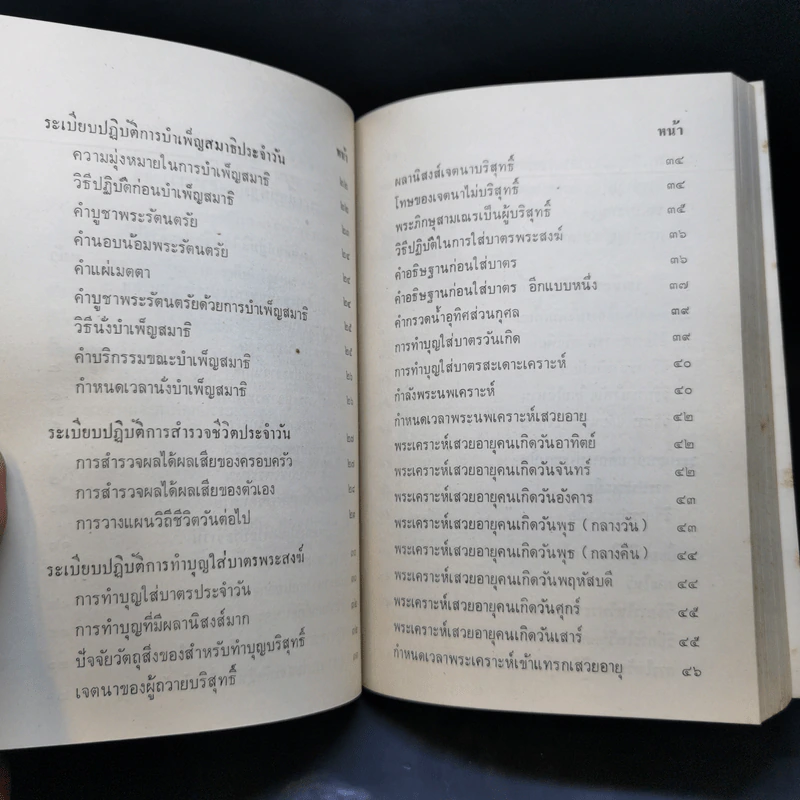 หน้า
ระเบียบปฏิบัติการบำเพ็ญสมาธิประจำวัน ๒๒
ความมุ่งหมายในการบำเพ็ญสมาธิ ๒๒
วิธีปฏิบัติก่อนบำเพ็ญสมาธิ
คำบูชาพระรัตนตรัย
คำนอบน้อมพระรัตนตรัย
คำแผ่เมตตา ๒๔
คำบูชาพระรัตนตรัยด้วยการบำเพ็ญสมาธิ
วิธีนั่งบำเพ็ญสมาธิ ๒๕
คำบริกรรมขณะบำเพ็ญสมาธิ
กำหนดเวลานั่งบำเพ็ญสมาธิ ๒๖
ระเบียบปฏิบัติการสำรวจชีวิตประจำวัน ๒๗
การสำรวจผลได้ผลเสียของครอบครัว
การสำรวจผลได้ผลเสียของตัวเอง
การวางแผนวิถีชีวิตวันต่อไป
ระเบียบปฏิบัติการทำบุญใส่บาตรพระสงฆ์
การทำบุญใส่บาตรประจำวัน
การทำบุญที่มีผลานิสงส์มาก
ปัจจัยวัตถุสิ่งของสำหรับทำบุญบริสุทธิ์
เจตนาของผู้ถวายบริสุทธิ์
หน้า
ผลานิสงส์เจตนาบริสุทธิ์ ๓๔
โทษของเจตนาไม่บริสุทธิ์ ๓๔
พระภิกษุสามเณรเป็นผู้บริสุทธิ์ ๓๕
วิธีปฏิบัติในการใส่บาตรพระสงฆ์ ๓๖
คำอธิษฐานก่อนใส่บาตร ๓๖
คำอธิษฐานก่อนใส่บาตร อีกแบบหนึ่ง ๓๗
คำกรวดน้ำอุทิศส่วนกุศล ๓๙
การทำบุญใส่บาตรวันเกิด ๓๙
การทำบุญใส่บาตรสะเดาะเคราะห์ ๔๐
กำลังพระนพเคราะห์ ๔๐
กำหนดเวลาพระนพเคราะห์เสวยอายุ ๔๒
พระเคราะห์เสวยอายุคนเกิดวันอาทิตย์ ๔๒
พระเคราะห์เสวยอายุคนเกิดวันจันทร์ ๔๒
พระเคราะห์เสวยอายุคนเกิดวันอังคาร ๔๓
พระเคราะห์เสวยอายุคนเกิดวันพุธ (กลางวัน) ๔๓
พระเคราะห์เสวยอายุคนเกิดวันพุธ (กลางคืน) ๔๔
พระเคราะห์เสวยอายุคนเกิดวันพฤหัสบดี ๔๔
พระเคราะห์เสวยอายุคนเกิดวันศุกร์ ๔๕
พระเคราะห์เสวยอายุคนเกิดวันเสาร์ ๔๕
กำหนดเวลาพระเคราะห์เข้าแทรกเสวยอายุ ๔๖